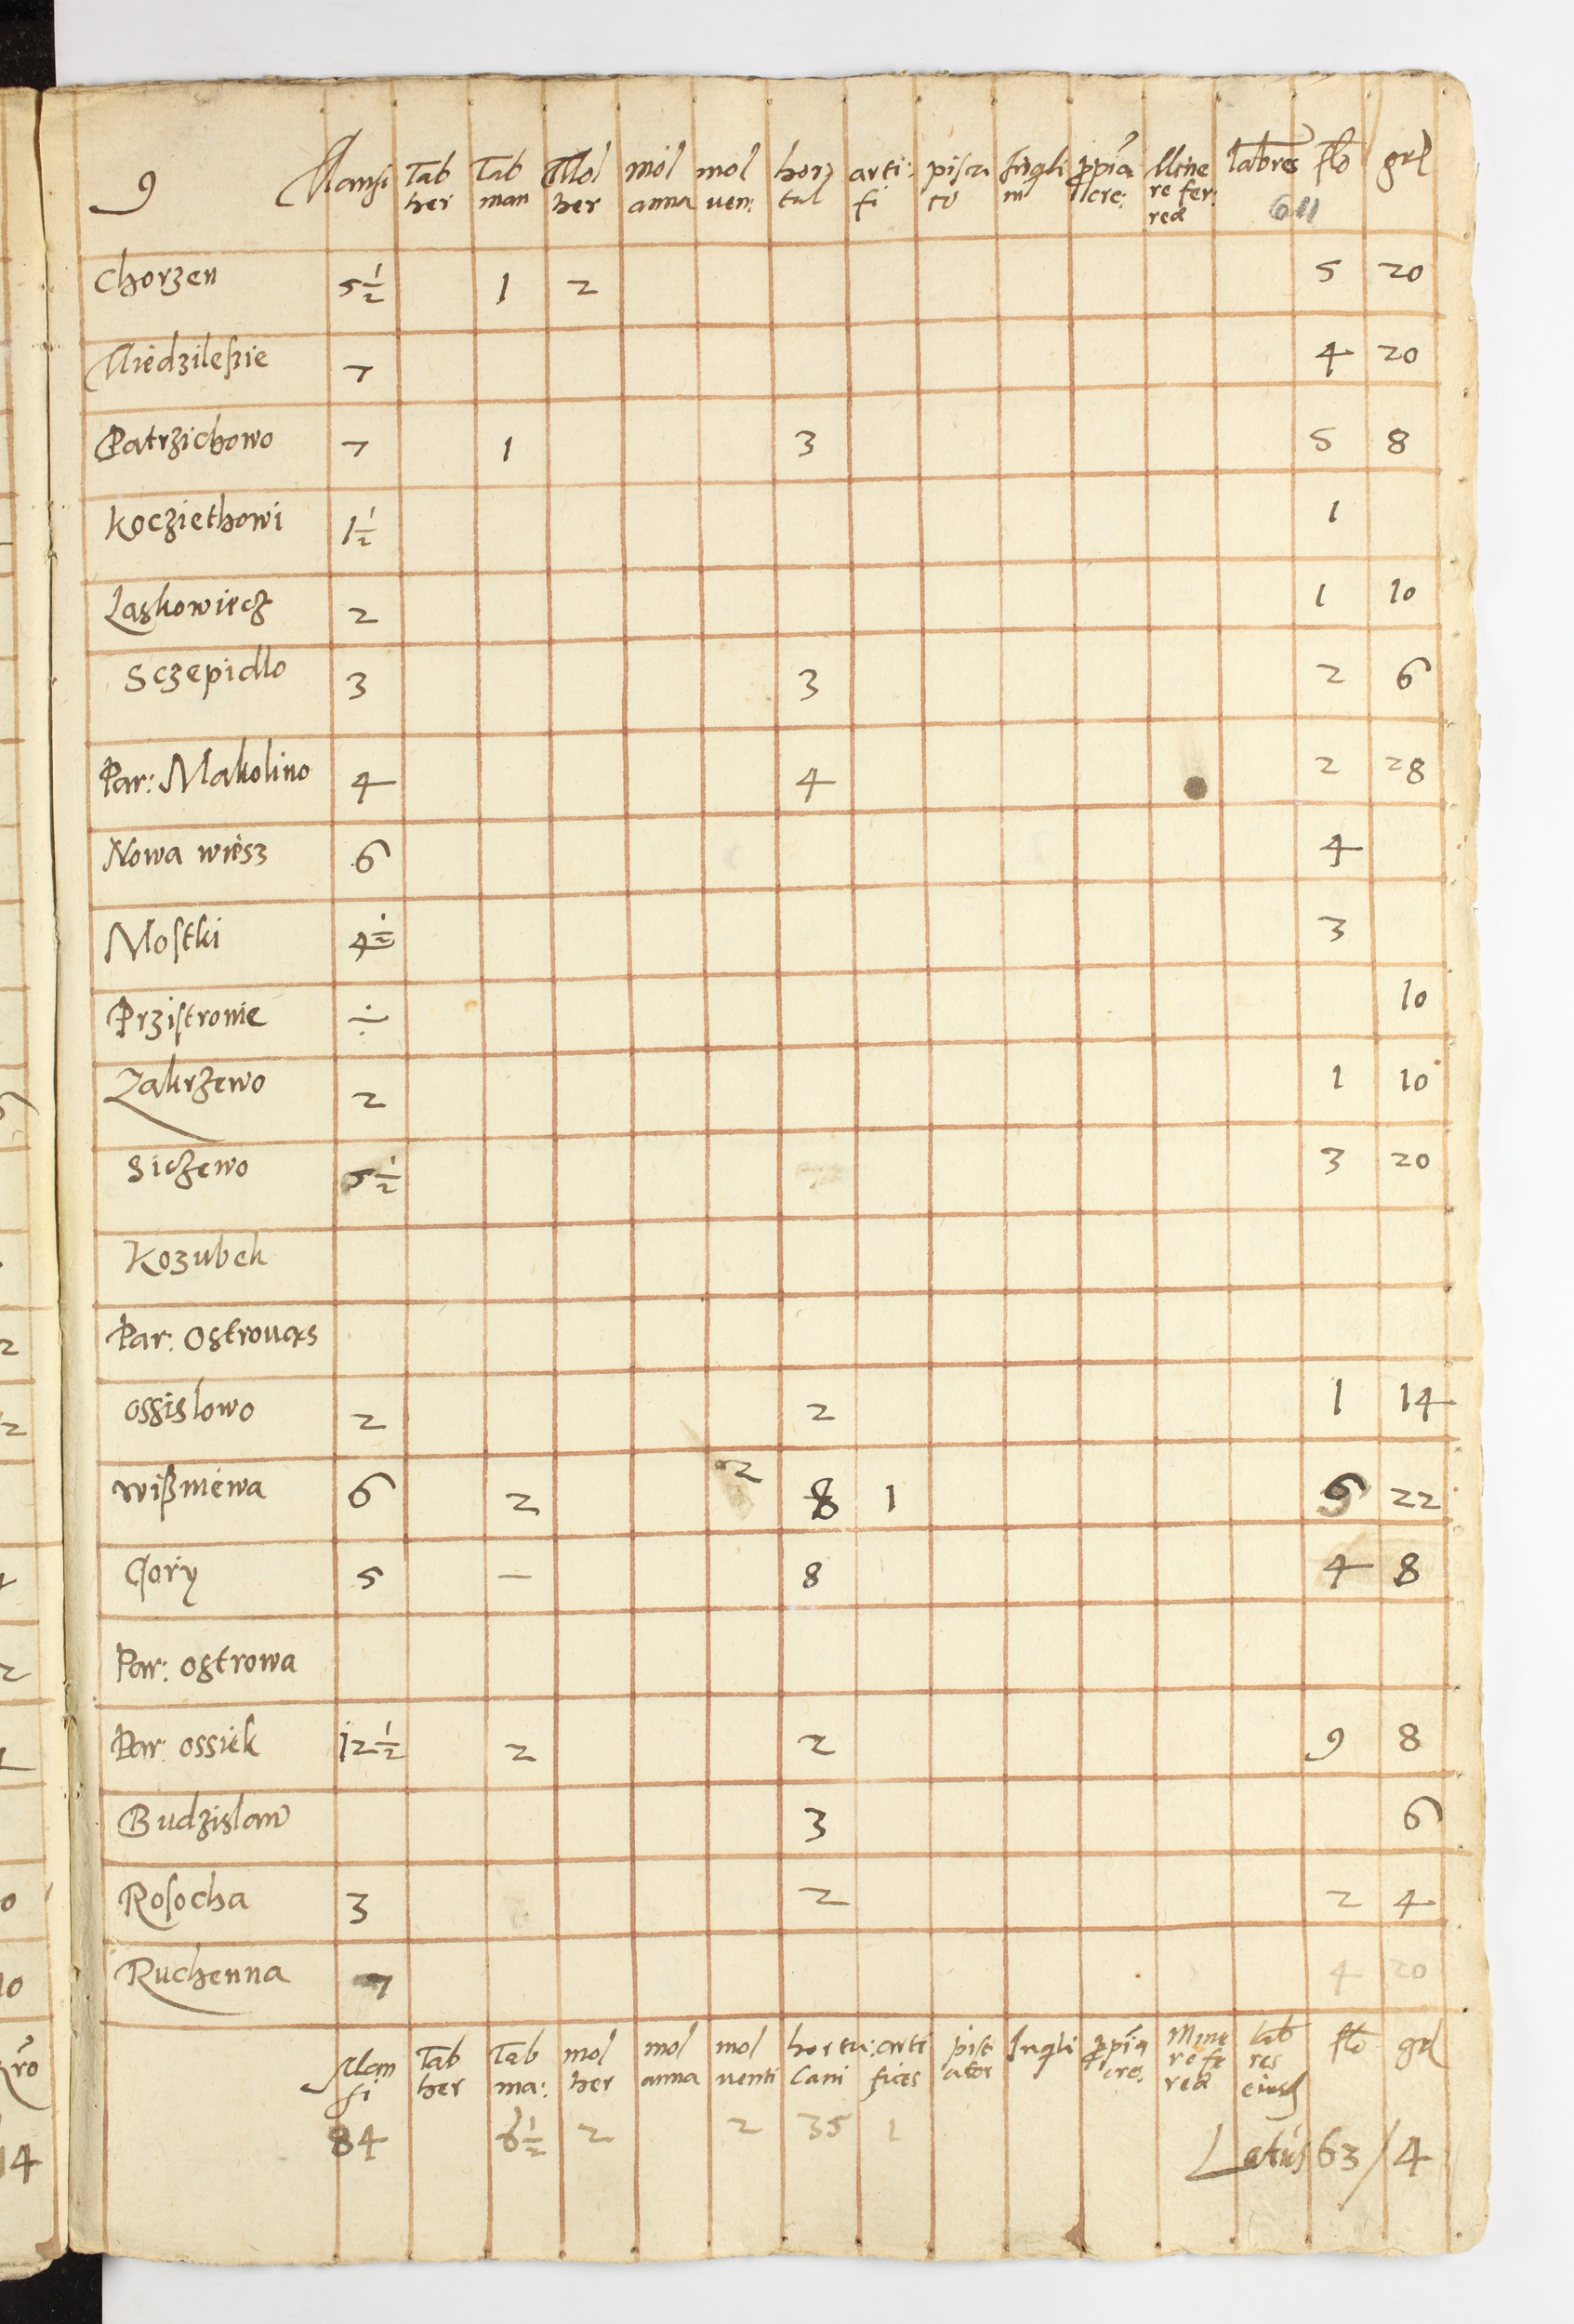 9 Mansi Tab her Tab man Mol her mol anna mol ven: hor tul arti: fi pisca to Inqli m ppia cre: Mine re fer: rea labres flo grl
611
Chorzen 5 1/2 1 2 5 20
Miedzileszie 7 4 20
Patrzichowo 7 1 3 5 8
Kocziethowi 1 1/2 1
Laskowiecz 2 1 10
Sczepidlo 3 3 2 6
Par: Makolino 4 4 2 28
Nowa wiesz 6 4
Mostki 4 1/2 3
Przistronie ÷ 10
Zakrzewo 2 1 10
Siczewo 5 1/2 3 20
Kozubek
Par: Ostrowas
ossislowo 2 2 1 14
wißniewa 6 2 2 8 1 6 22
Gory 5 – 8 4 8
Par: ostrowa
Par: ossiek 12 1/2 2 2 9 8
Budzislaw 3 6
Rosocha 3 2 2 4
Ruchenna 7 4 20
Man si Tab her Tab ma: mol her mol anna mol venti hortu: lani arti fices pisc ator Inqli ppia cre. Mine re fe rea lab res eiusd flo grl
84 6 1/2 2 2 35 1 Latus 63 / 4